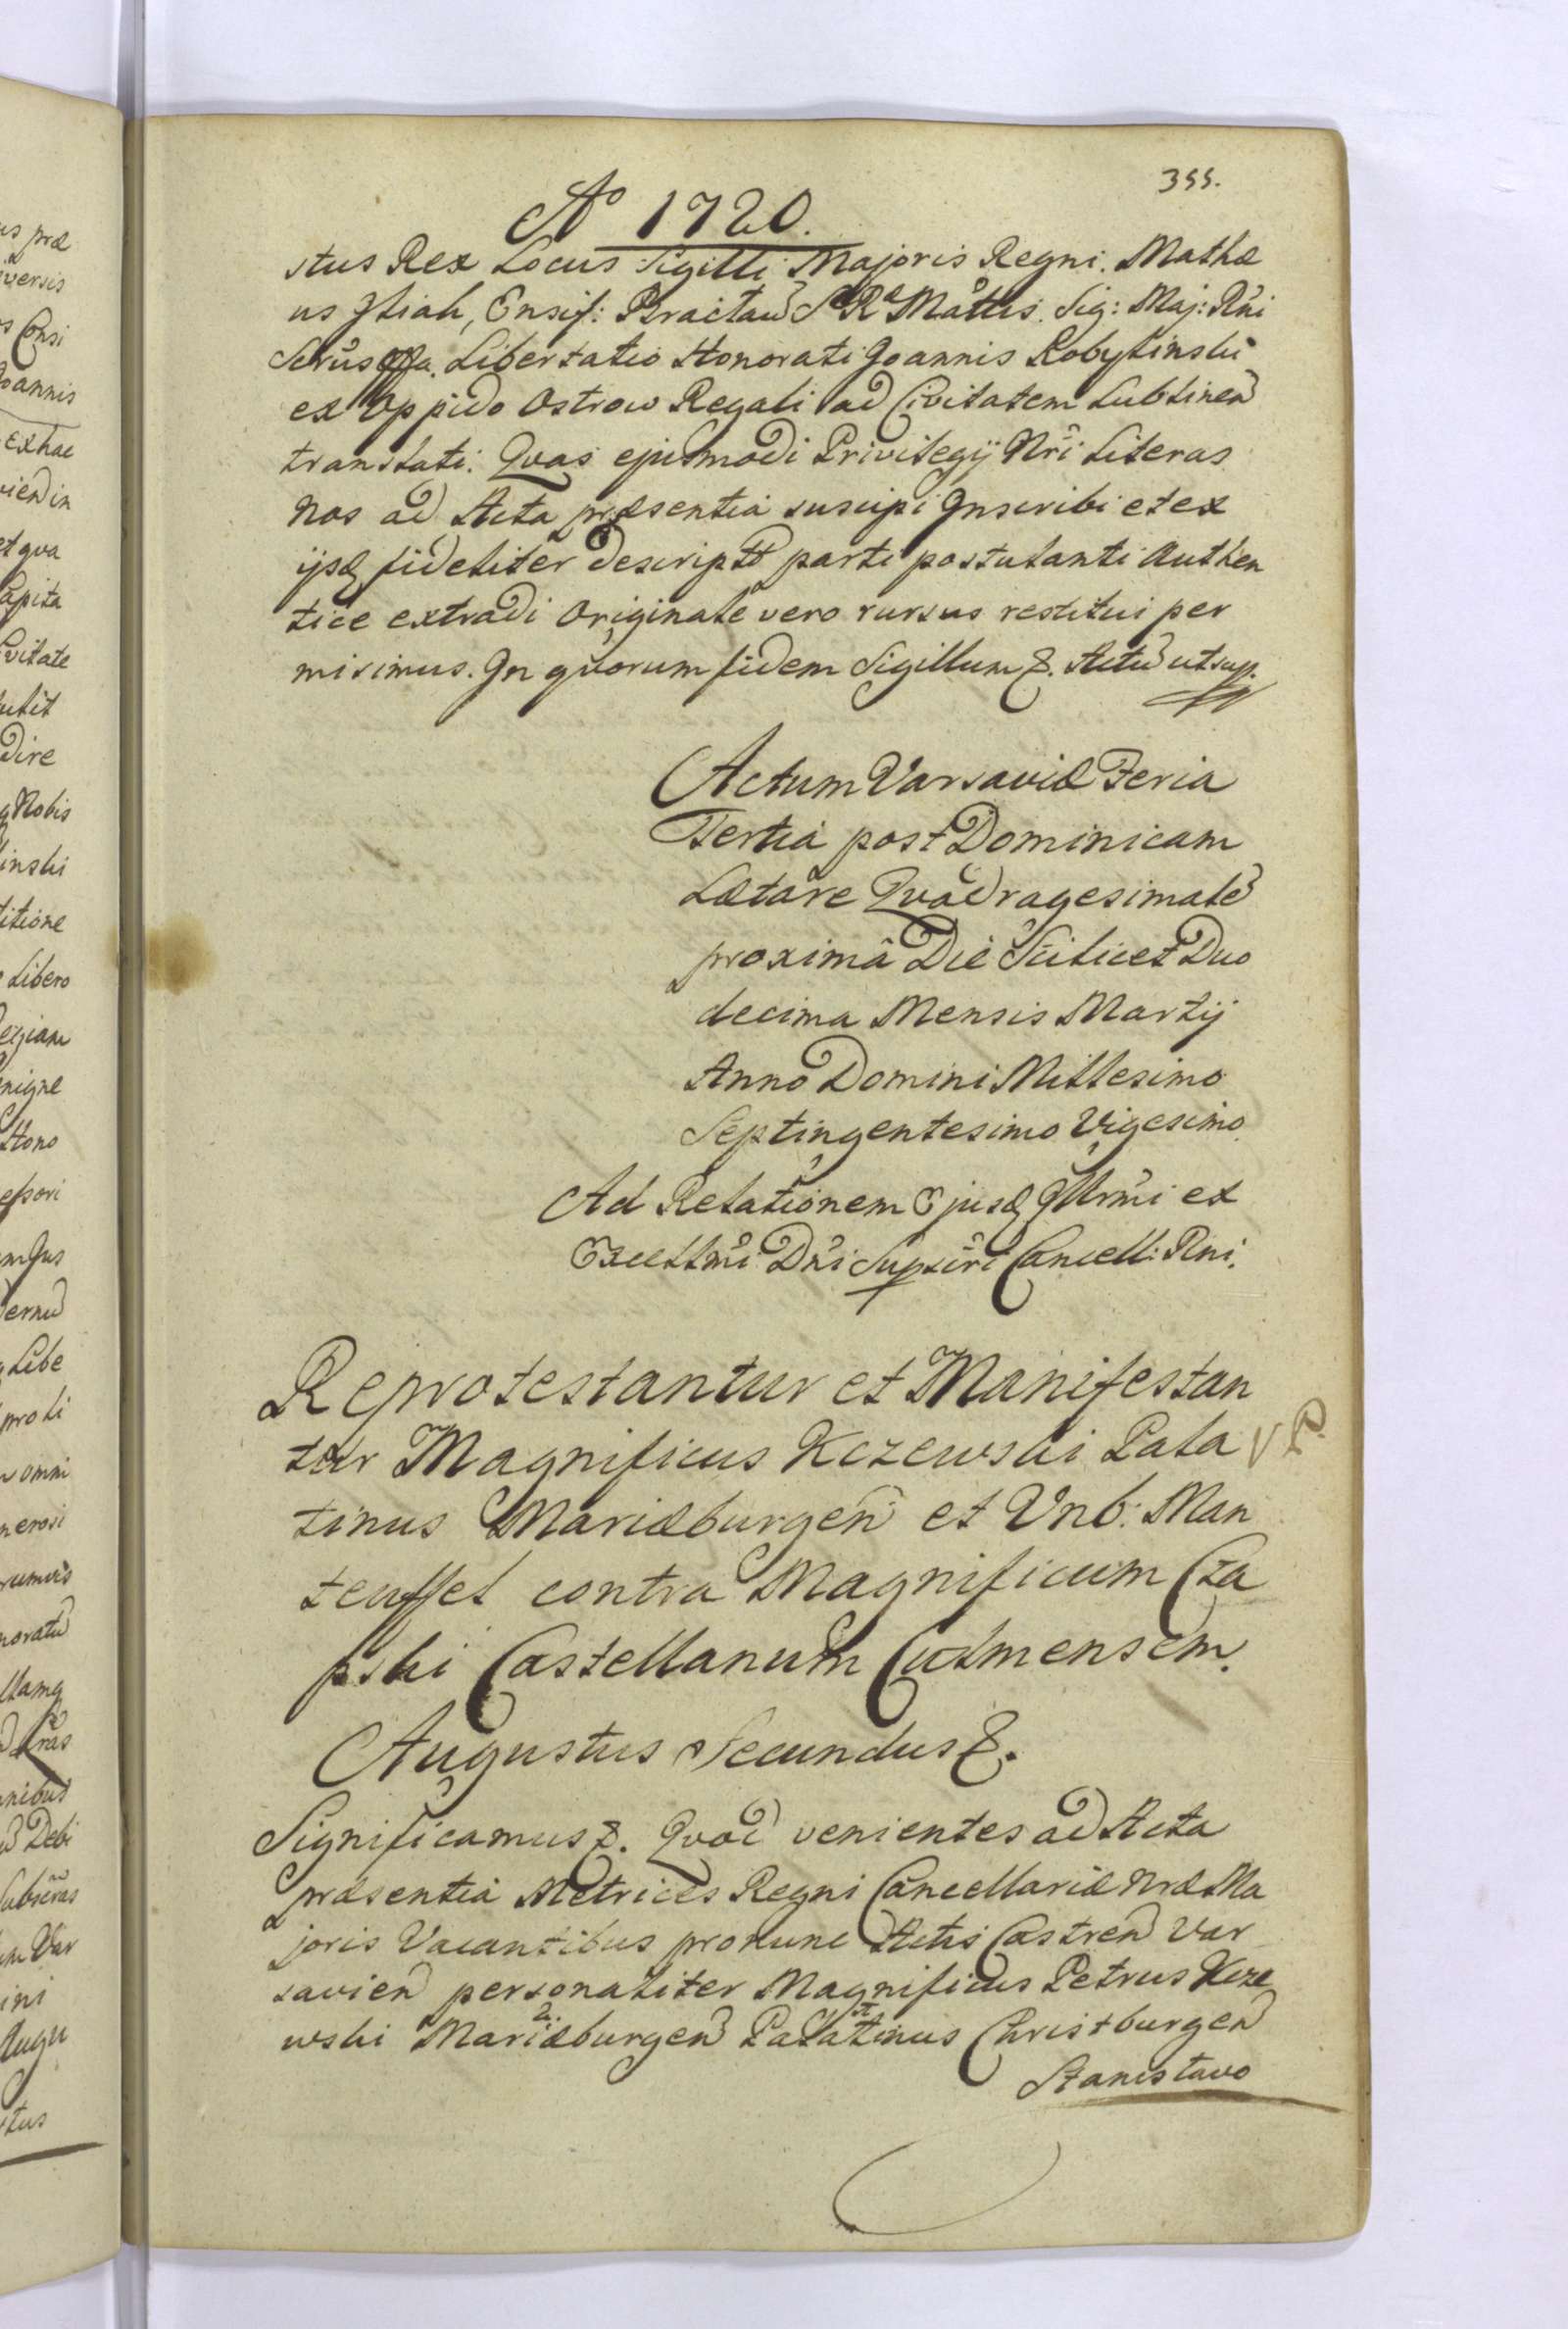 355.
Aº 1720.
stus Rex Locus Sigilli Majoris Regni. Mathæ
us Ensif: S Rᵃ Mattis. Sig: Maj: Rni
Libertatio Honorati Joannis Kobylinski
ex Oppido Ostrow Regali ad Civitatem Lublinen
translati. Qvas ejusmodi Privilegij Nri Literas
Nos ad Acta præsentia suscipi Inscribi et ex
ijsq fideliter descriptt parti postulanti Authen
tice extradi Originale vero rursus restitui per
misimus. In qvorum fidem Sigillum &. Actu ut sup.
Actum Varsaviæ Feria
Tertia post Dominicam
Lætare Qvadragesimale
proximâ Die Scilicet Duo
decima Mensis Martij
Anno Domini Millesimo
Septingentesimo Vigesimo
Ad Relationem Ejusq Illrmi et
Excellmi Dni Supscri Cancell: Rni.
Reprotestantur et Manifestan
tur Magnificus Kczewski Pala
tinus Mariæburgen et Vrb: Man
teuffel contra Magnificum Cza
pski Castellanum Culmensem.
Augustus Secundus &.
Significamus &. Qvod venientes ad Acta
præsentia Metrices Regni Cancellariæ Nræ Ma
joris Vacantibus pro nunc Actis Castren Var
savien personaliter Magnificus Petrus Kcze
wski Mariæburgen Palatinus Christburgen
Stanislavo